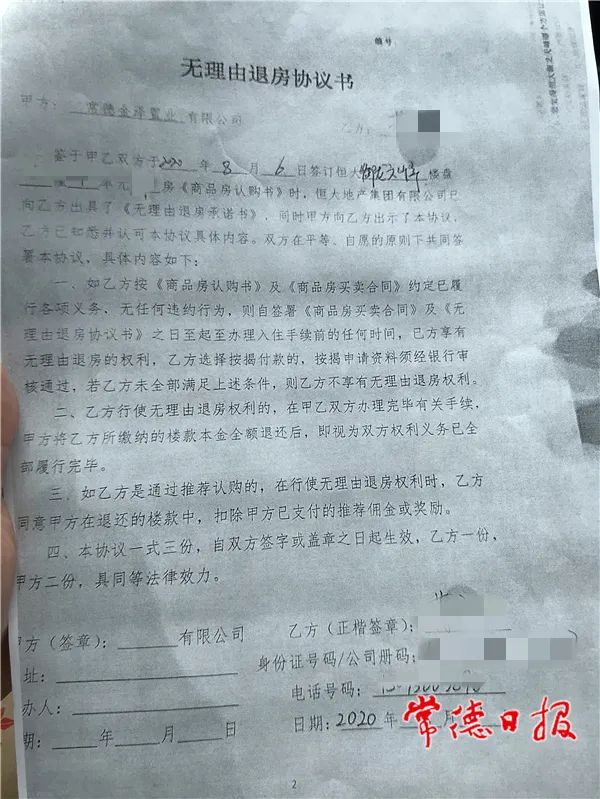 编号
无理由退房协议书
甲方：常德金泽置业有限公司
乙方：
鉴于甲乙双方于2020年8月6日签订恒大 楼盘
单元 房《商品房认购书》时，恒大地产集团有限公司已
向乙方出具了《无理由退房承诺书》，同时甲方向乙方出示了本协议，
乙方已知悉并认可本协议具体内容。双方在平等、自愿的原则下共同签
署本协议，具体内容如下：
一、如乙方按《商品房认购书》及《商品房买卖合同》约定已履
行各项义务，无任何违约行为，则自签署《商品房买卖合同》及《无
理由退房协议书》之日至起至办理入住手续前的任何时间，已方享有
无理由退房的权利，乙方选择按揭付款的，按揭申请资料须经银行审
核通过，若乙方未全部满足上述条件，则乙方不享有无理由退房权利。
二、乙方行使无理由退房权利的，在甲乙双方办理完毕有关手续，
甲方将乙方所缴纳的楼款本金全额退还后，即视为双方权利义务已全
部履行完毕。
三、如乙方是通过推荐认购的，在行使无理由退房权利时，乙方
同意甲方在退还的楼款中，扣除甲方已支付的推荐佣金或奖励。
四、本协议一式三份，自双方签字或盖章之日起生效，乙方一份，
甲方二份，具同等法律效力。
方（签章）：＿＿＿有限公司
乙方（正楷签章）：
址：
身份证号码/公司册码：
办人：
电话号码：
期：＿＿年＿＿月＿＿日
日期：2020年 月
常德日报
2